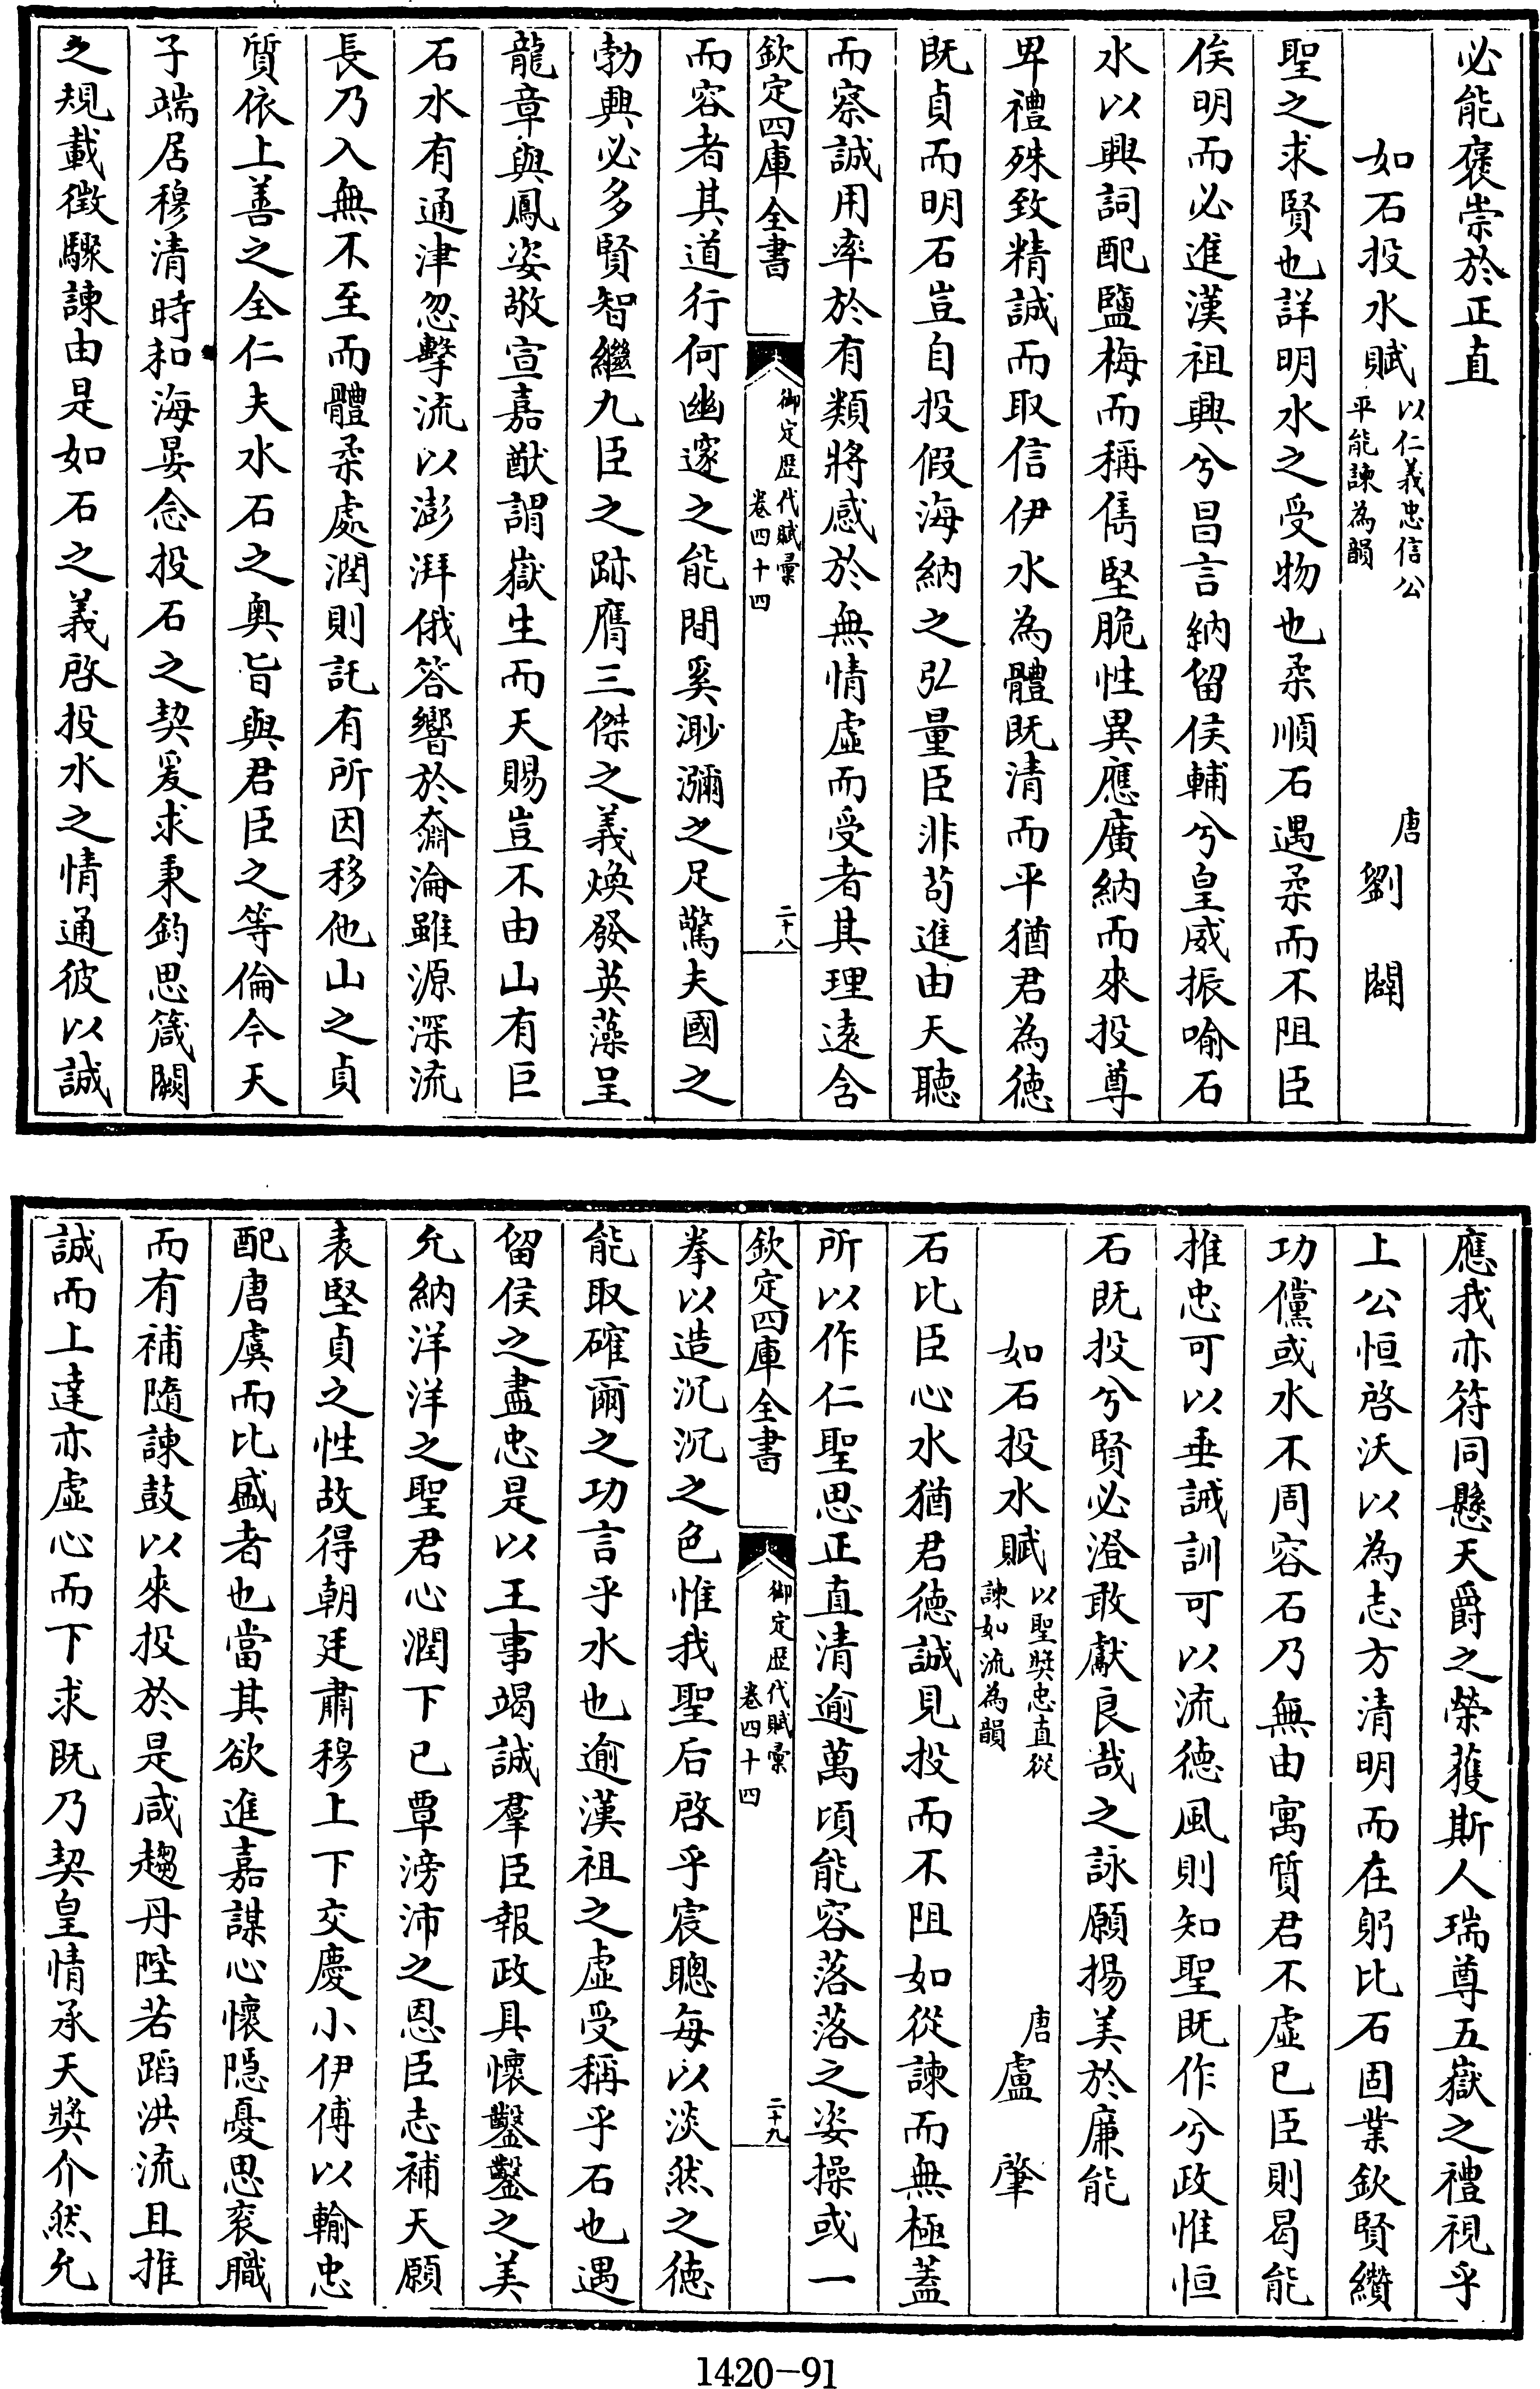 必能褒崇於正直
如石投水賦以仁義忠信公平能諫為韻 唐劉闢
聖之求賢也詳明水之受物也柔順石遇柔而不阻臣
俟明而必進漢祖興兮昌言納留侯輔兮皇威振喻石
水以興詞配鹽梅而稱儁堅脆性異應廣納而來投尊
卑禮殊致精誠而取信伊水為體既清而平猶君為德
既貞而明石豈自投假海納之弘量臣非苟進由天聽
而察誠用率於有類將感於無情虛而受者其理遠含
欽定四庫全書 御定歷代賦彙卷四十四 二十八
而容者其道行何幽邃之能間奚渺瀰之足驚夫國之
勃興必多賢智繼九臣之跡膺三傑之義煥發英藻呈
龍章與鳳姿敬宣嘉猷謂嶽生而天賜豈不由山有巨
石水有通津忽擊流以澎湃俄答響於奫淪雖源深流
長乃入無不至而體柔處潤則託有所因移他山之貞
質依上善之全仁夫水石之奧旨與君臣之等倫今天
子端居穆清時和海晏念投石之契爰求秉鈞思箴闕
之規載徵驟諫由是如石之義啓投水之情通彼以誠
應我亦符同懸天爵之榮獲斯人瑞尊五嶽之禮視乎
上公恒啓沃以為志方清明而在躬比石固業欽賢纘
功儻或水不周容石乃無由寓質君不虛已臣則曷能
推忠可以垂誡訓可以流德風則知聖既作兮政惟恒
石既投兮賢必澄敢獻良哉之詠願揚美於廉能
如石投水賦以聖奬忠直從諫如流為韻 唐盧肇
石比臣心水猶君德誠見投而不阻如從諫而無極蓋
所以作仁聖思正直清逾萬頃能容落落之姿操或一
欽定四庫全書 御定歷代賦彙卷四十四 二十九
拳以造沉沉之色惟我聖后啓乎宸聰每以淡然之德
能取確爾之功言乎水也逾漢祖之虛受稱乎石也遇
留侯之盡忠是以王事竭誠羣臣報政具懷鑿鑿之美
允納洋洋之聖君心潤下已覃滂沛之恩臣志補天願
表堅貞之性故得朝廷肅穆上下交慶小伊傅以輸忠
配唐虞而比盛者也當其欲進嘉謀心懷隠憂思衮職
而有補隨諫鼓以來投於是咸趨丹陛若蹈洪流且推
誠而上達亦虛心而下求既乃契皇情承天奬介然允
1420-91